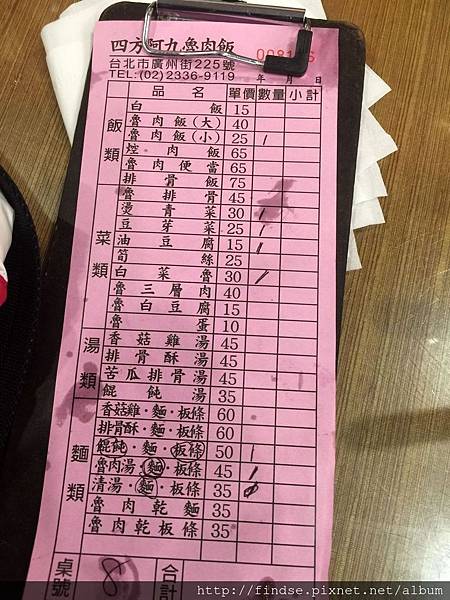 四方阿九魯肉飯
台北市廣州街225號
TEL:(02)2336-9119 年 月 日
品名 單價 數量 小計
飯類
白飯 15
魯肉飯(大) 40
魯肉飯(小) 25 /
焢肉飯 65
魯肉便當 65
排骨飯 75
菜類
魯排骨 45
燙青菜 30 /
豆芽菜 25 /
油豆腐 15 /
筍絲 25
白菜魯 30 /
魯三層肉 40
魯白豆腐 15
魯蛋 10
湯類
香菇雞湯 45
排骨酥湯 45
苦瓜排骨湯 45
餛飩湯 35
麵類
香菇雞·麵·板條 60
排骨酥·麵·板條 60
餛飩·麵·板條 50 1
魯肉湯·麵·板條 45 /
清湯·麵·板條 35
魯肉乾麵 35
魯肉乾板條 35
桌號 8 合計
http://findse.pixnet.net/album